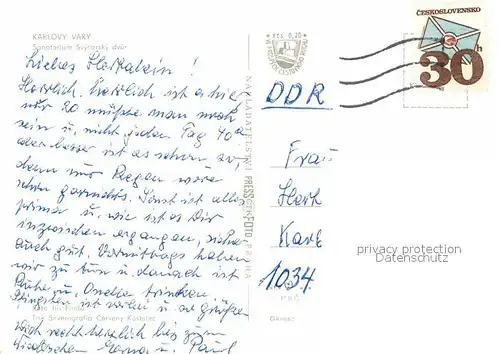 KARLOVY VARY
Sanatorium Švýcarský dvůr
Liebes
Herrlich, herrlich ist es hier
nur 20 müßte man noch
sein u. nicht jeden Tag 40°
aber besser ist es schon so,
denn nur Regen wäre
schon garnichts. Sonst ist alles
prima u. wie ist es Dir
inzwischen ergangen, sicher
auch gut. Vormittags haben
wir zu tun u. danach ist
Ruhe u. trinken
Pfingsten ist vorbei u. wir grüßen
Foto Jiří
Tisk Severografia Červený Kostelec
Dich recht herzlich bis zum
u. Paul
NAKLADATELSTVÍ PRESSFOTO PRAHA
Kčs 0,20
ČESKOSLOVENSKO
30h
DDR
Frau
Herk
Karl
1034
PSČ
Okres:
privacy protection
Datenschutz